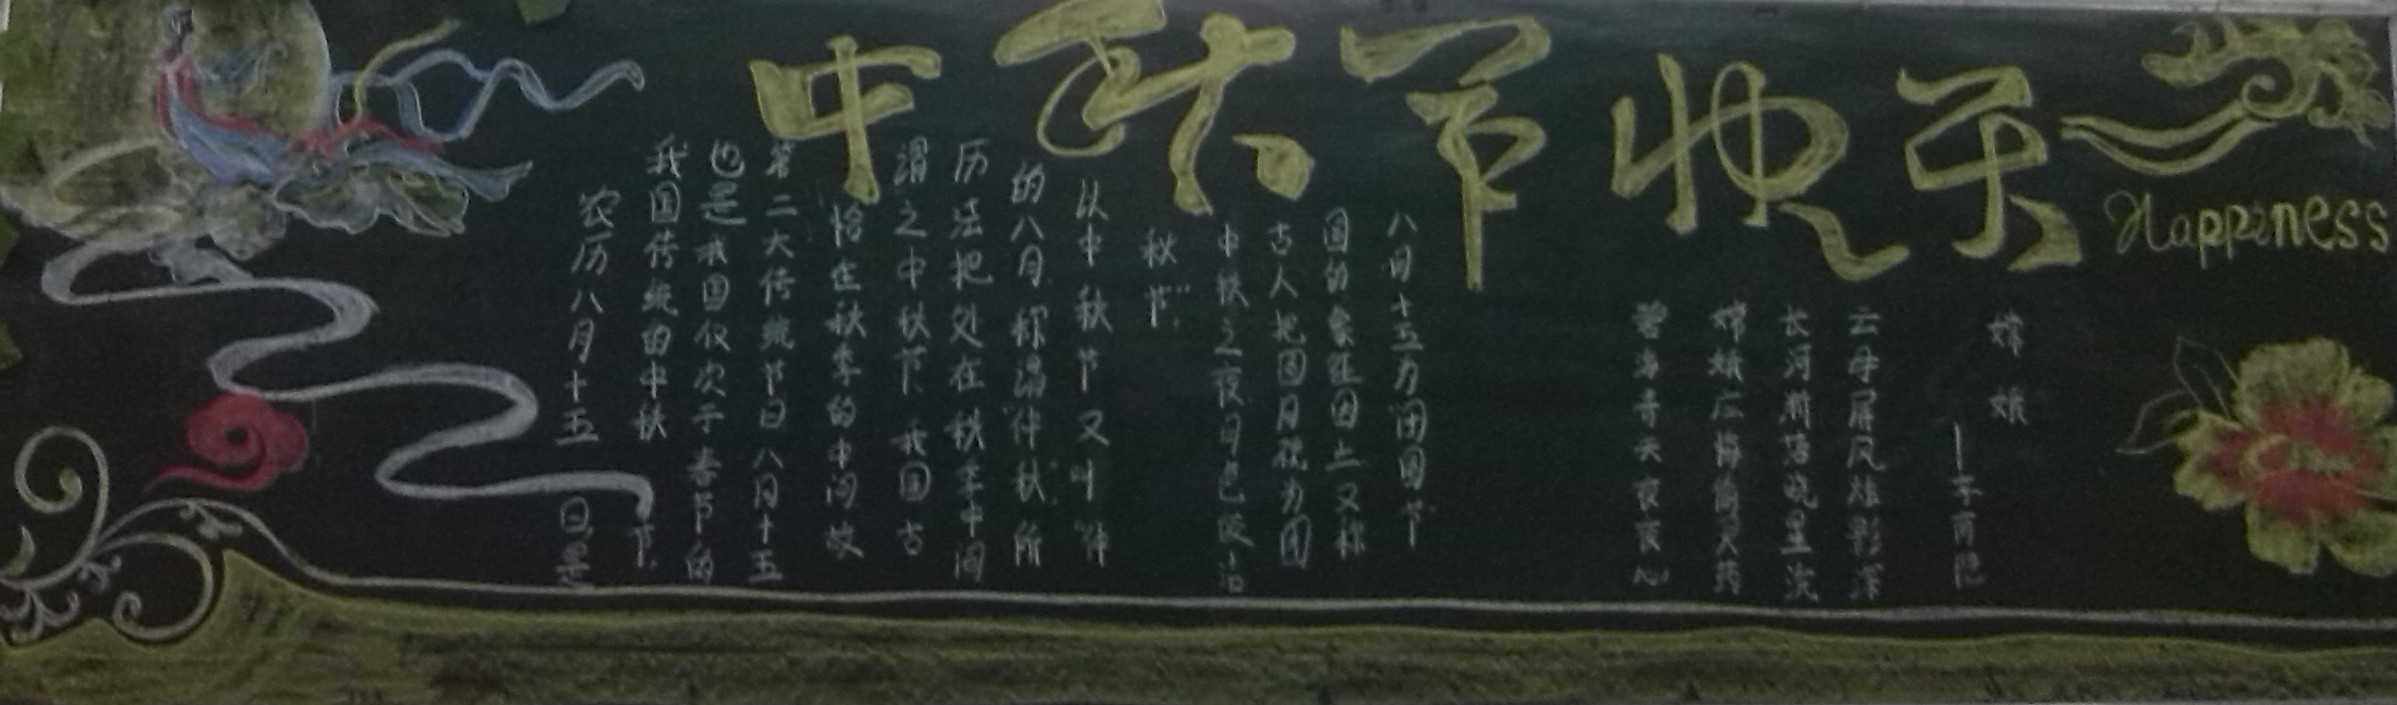 中秋节快乐
Happiness
农历八月十五日是
我国传统的中秋节.
也是我国仅次于春节的
第二大传统节日八月十五
恰在秋季的中间故
谓之中秋节.我国古
历法把处在秋季中间
的八月称谓"仲秋"所
以中秋节又叫"仲
秋节".
中秋之夜月色皎洁
古人把圆月视为团
圆的象征因此又称
八月十五为"团圆节"
嫦娥
—李商隐
云母屏风烛影深
长河渐落晓星沉
嫦娥应悔偷灵药
碧海青天夜夜心